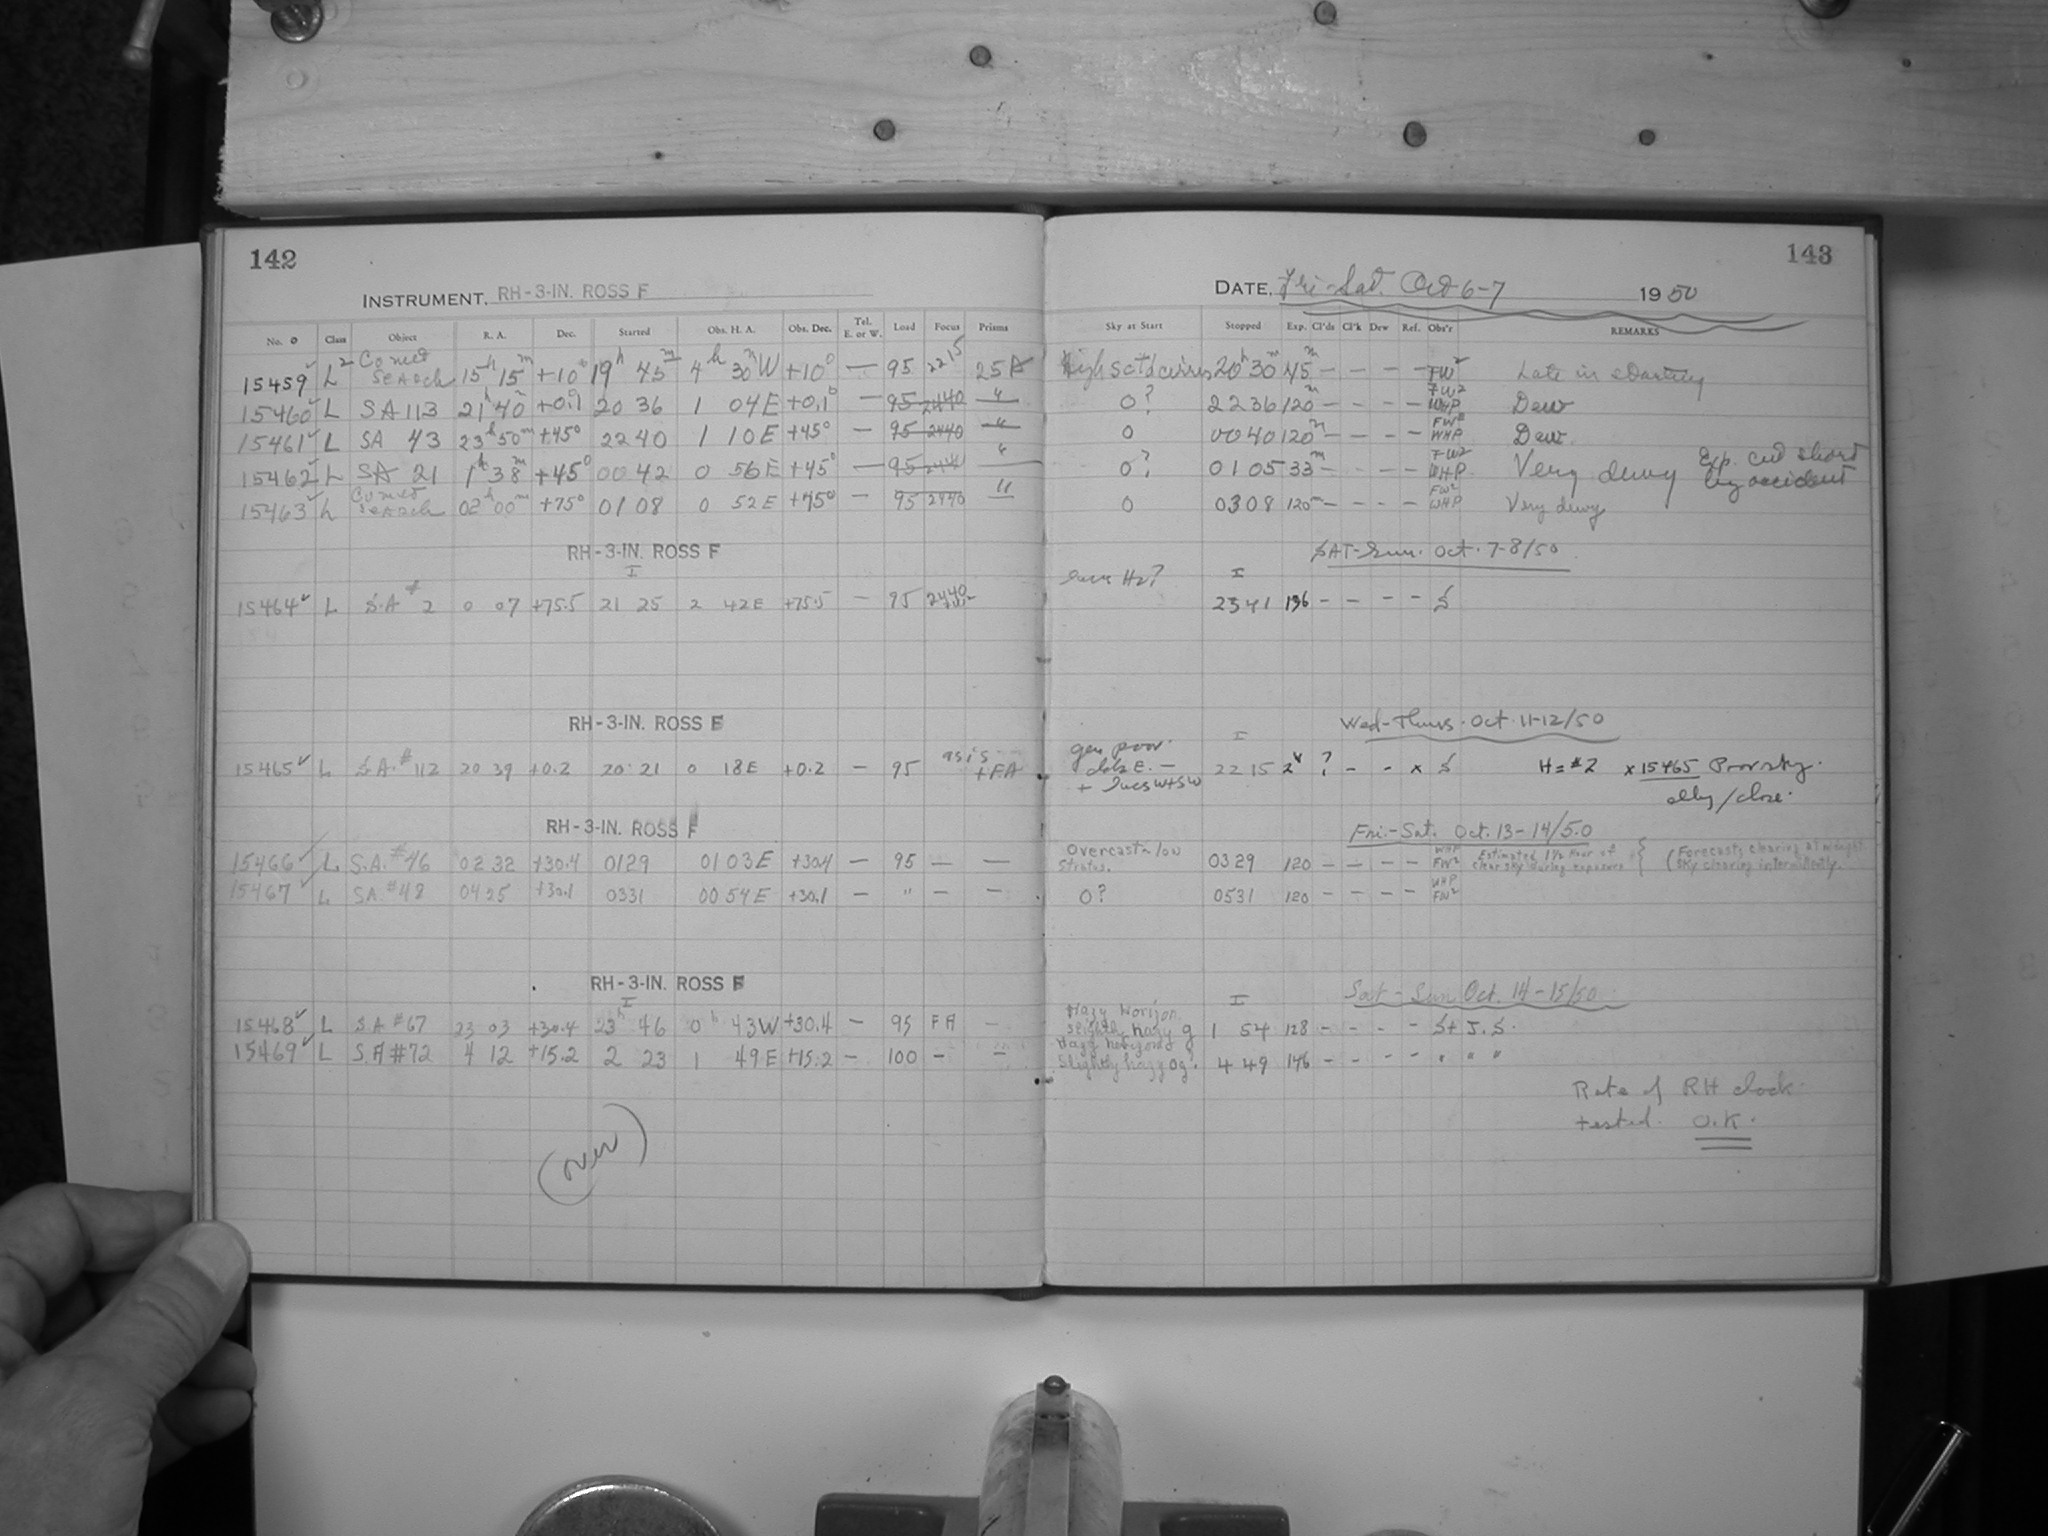 142
INSTRUMENT, RH-3-IN. ROSS F
No. Class Object R. A. Dec. Started Obs. H. A. Obs. Dec. Tel. E. or W. Load Focus Prisms
15459 L2 Comet Search 15h 15m +10° 19h 45m 4h 30m W +10° — 95 2215 25A
15460 L SA 113 21h 40m +0.1 20 36 1 04E +0.1° — 95 2440 "
15461 L SA 43 23h 50m +45° 22 40 1 10E +45° — 95 2440 "
15462 L SA 21 1h 38m +45° 00 42 0 56E +45° — 95 "
15463 L Comet Search 02h 00m +75° 01 08 0 52E +75° — 95 2440 "
RH-3-IN. ROSS F
I
15464 L S.A # 2 0 07 +75.5 21 25 2 42E +75.5 — 95 2440
RH-3-IN. ROSS F
15465 L S.A. # 112 20 39 +0.2 20 21 0 18E +0.2 — 95 as is + FA
RH-3-IN. ROSS F
15466 L S.A. #46 02 32 +30.4 0129 01 03E +30.4 — 95 — —
15467 L SA. #48 0425 +30.1 0331 00 54E +30.1 — " — —
RH-3-IN. ROSS F
I
15468 L S.A #67 23 03 +30.4 23h 46 0h 43W +30.4 — 95 FA —
15469 L S.A #72 4 12 +15.2 2 23 1 49E +15.2 — 100 — —
(over)
143
DATE, Fri-Sat. Oct 6-7 1950
Sky at Start Stopped Exp. Cl'ds Cl'k Dew Ref. Obs'r REMARKS
High sctd cirrus 20h 30m 45m — — — FW2 Late in starting
0? 2236 120m — — — — FW2 WHP Dew
0 0040 120m — — — — FW2 WHP Dew
0? 01 05 33m — — — — FW2 WHP Very dewy Exp. cut short by accident
0 0308 120m — — — — FW2 WHP Very dewy
SAT-Sun. Oct. 7-8/50
Hz? I
2341 136 — — — — S
Wed-Thurs. Oct. 11-12/50
gen poor I
E. — 22 15 2 ? — — x S H=#2 x 15465 Poor sky.
+ W+SW /close.
Fri.-Sat. Oct. 13-14/50
Overcast-low Stratus. 0329 120 — — — — WHP FW2 Estimated 1½ hour of clear sky during exposure { (Forecast, clearing at midnight Sky clearing intermittently.
0? 0531 120 — — — — WHP FW2
Sat-Sun Oct. 14-15/50
I
Hazy Horizon slightly hazy 1 54 128 — — — — S+J.S.
Hazy horizon Slightly hazy 4 49 146 — — — — " " "
Rate of RH clock
tested. O.K.